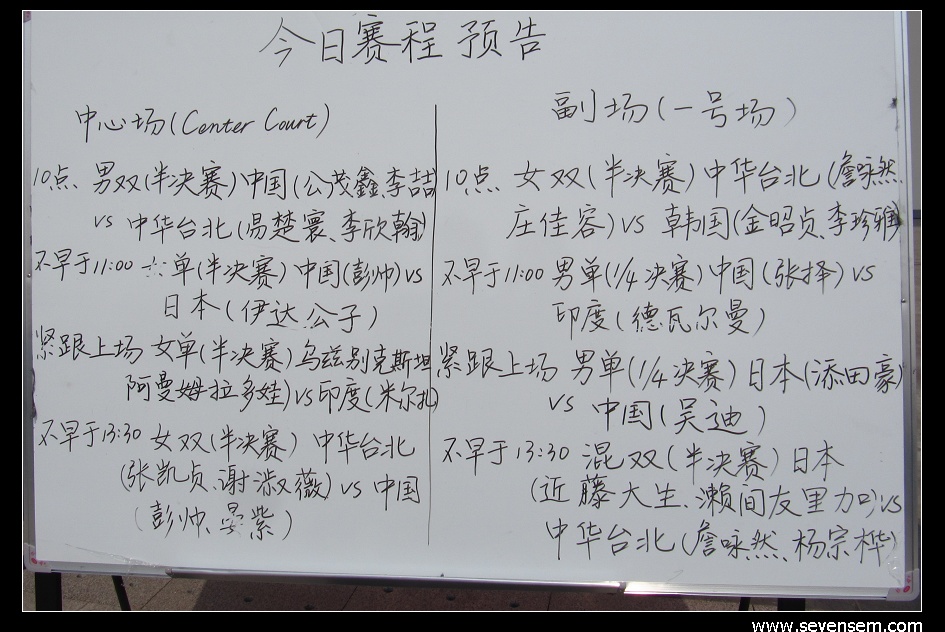 今日赛程预告
中心场(Center Court)
10点、男双(半决赛)中国(公茂鑫、李喆)
vs 中华台北(易楚寰、李欣翰)
不早于11:00 女单(半决赛)中国(彭帅)vs
日本(伊达公子)
紧跟上场 女单(半决赛)乌兹别克斯坦
阿曼姆拉多娃)vs印度(米尔扎)
不早于13:30 女双(半决赛) 中华台北
(张凯贞、谢淑薇)vs 中国
(彭帅、晏紫)
副场(一号场)
10点、女双(半决赛)中华台北(詹咏然、
庄佳容)vs 韩国(金昭贞、李珍雅)
不早于11:00 男单(1/4决赛)中国(张择)vs
印度(德瓦尔曼)
紧跟上场 男单(1/4决赛)日本(添田豪)
vs 中国(吴迪)
不早于13:30 混双(半决赛)日本
(近藤大生、濑间友里加)vs
中华台北(詹咏然、杨宗桦)
www.sevensem.com